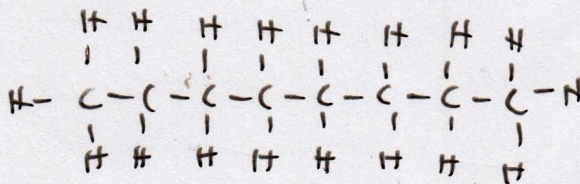 H H H H H H H H
H - C - C - C - C - C - C - C - C - H
H H H H H H H H